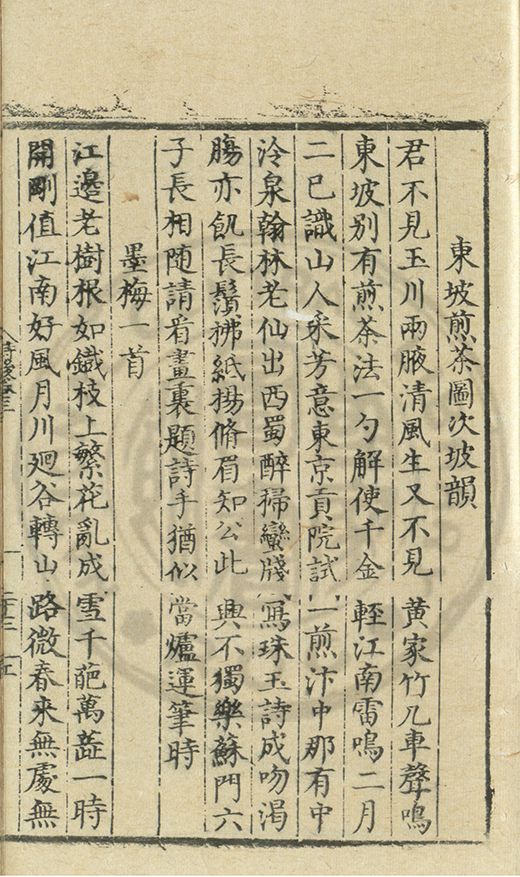 東坡煎茶圖次坡韻
君不見玉川兩腋清風生又不見黄家竹几車聲鳴
東坡别有煎茶法一勺解使千金輕江南雷鳴二月
二已識山人采芳意東京貢院試一煎汴中那有中
泠泉翰林老仙出西蜀醉掃蠻牋寫珠玉詩成吻渴
腸亦飢長鬚拂紙揚脩眉知公此興不獨樂蘇門六
子長相随請看畫裏題詩手猶似當爐運筆時
墨梅一首
江邊老樹根如鐵枝上繁花亂成雪千葩萬蘂一時
開剛值江南好風月川廻谷轉山路微春来無處無